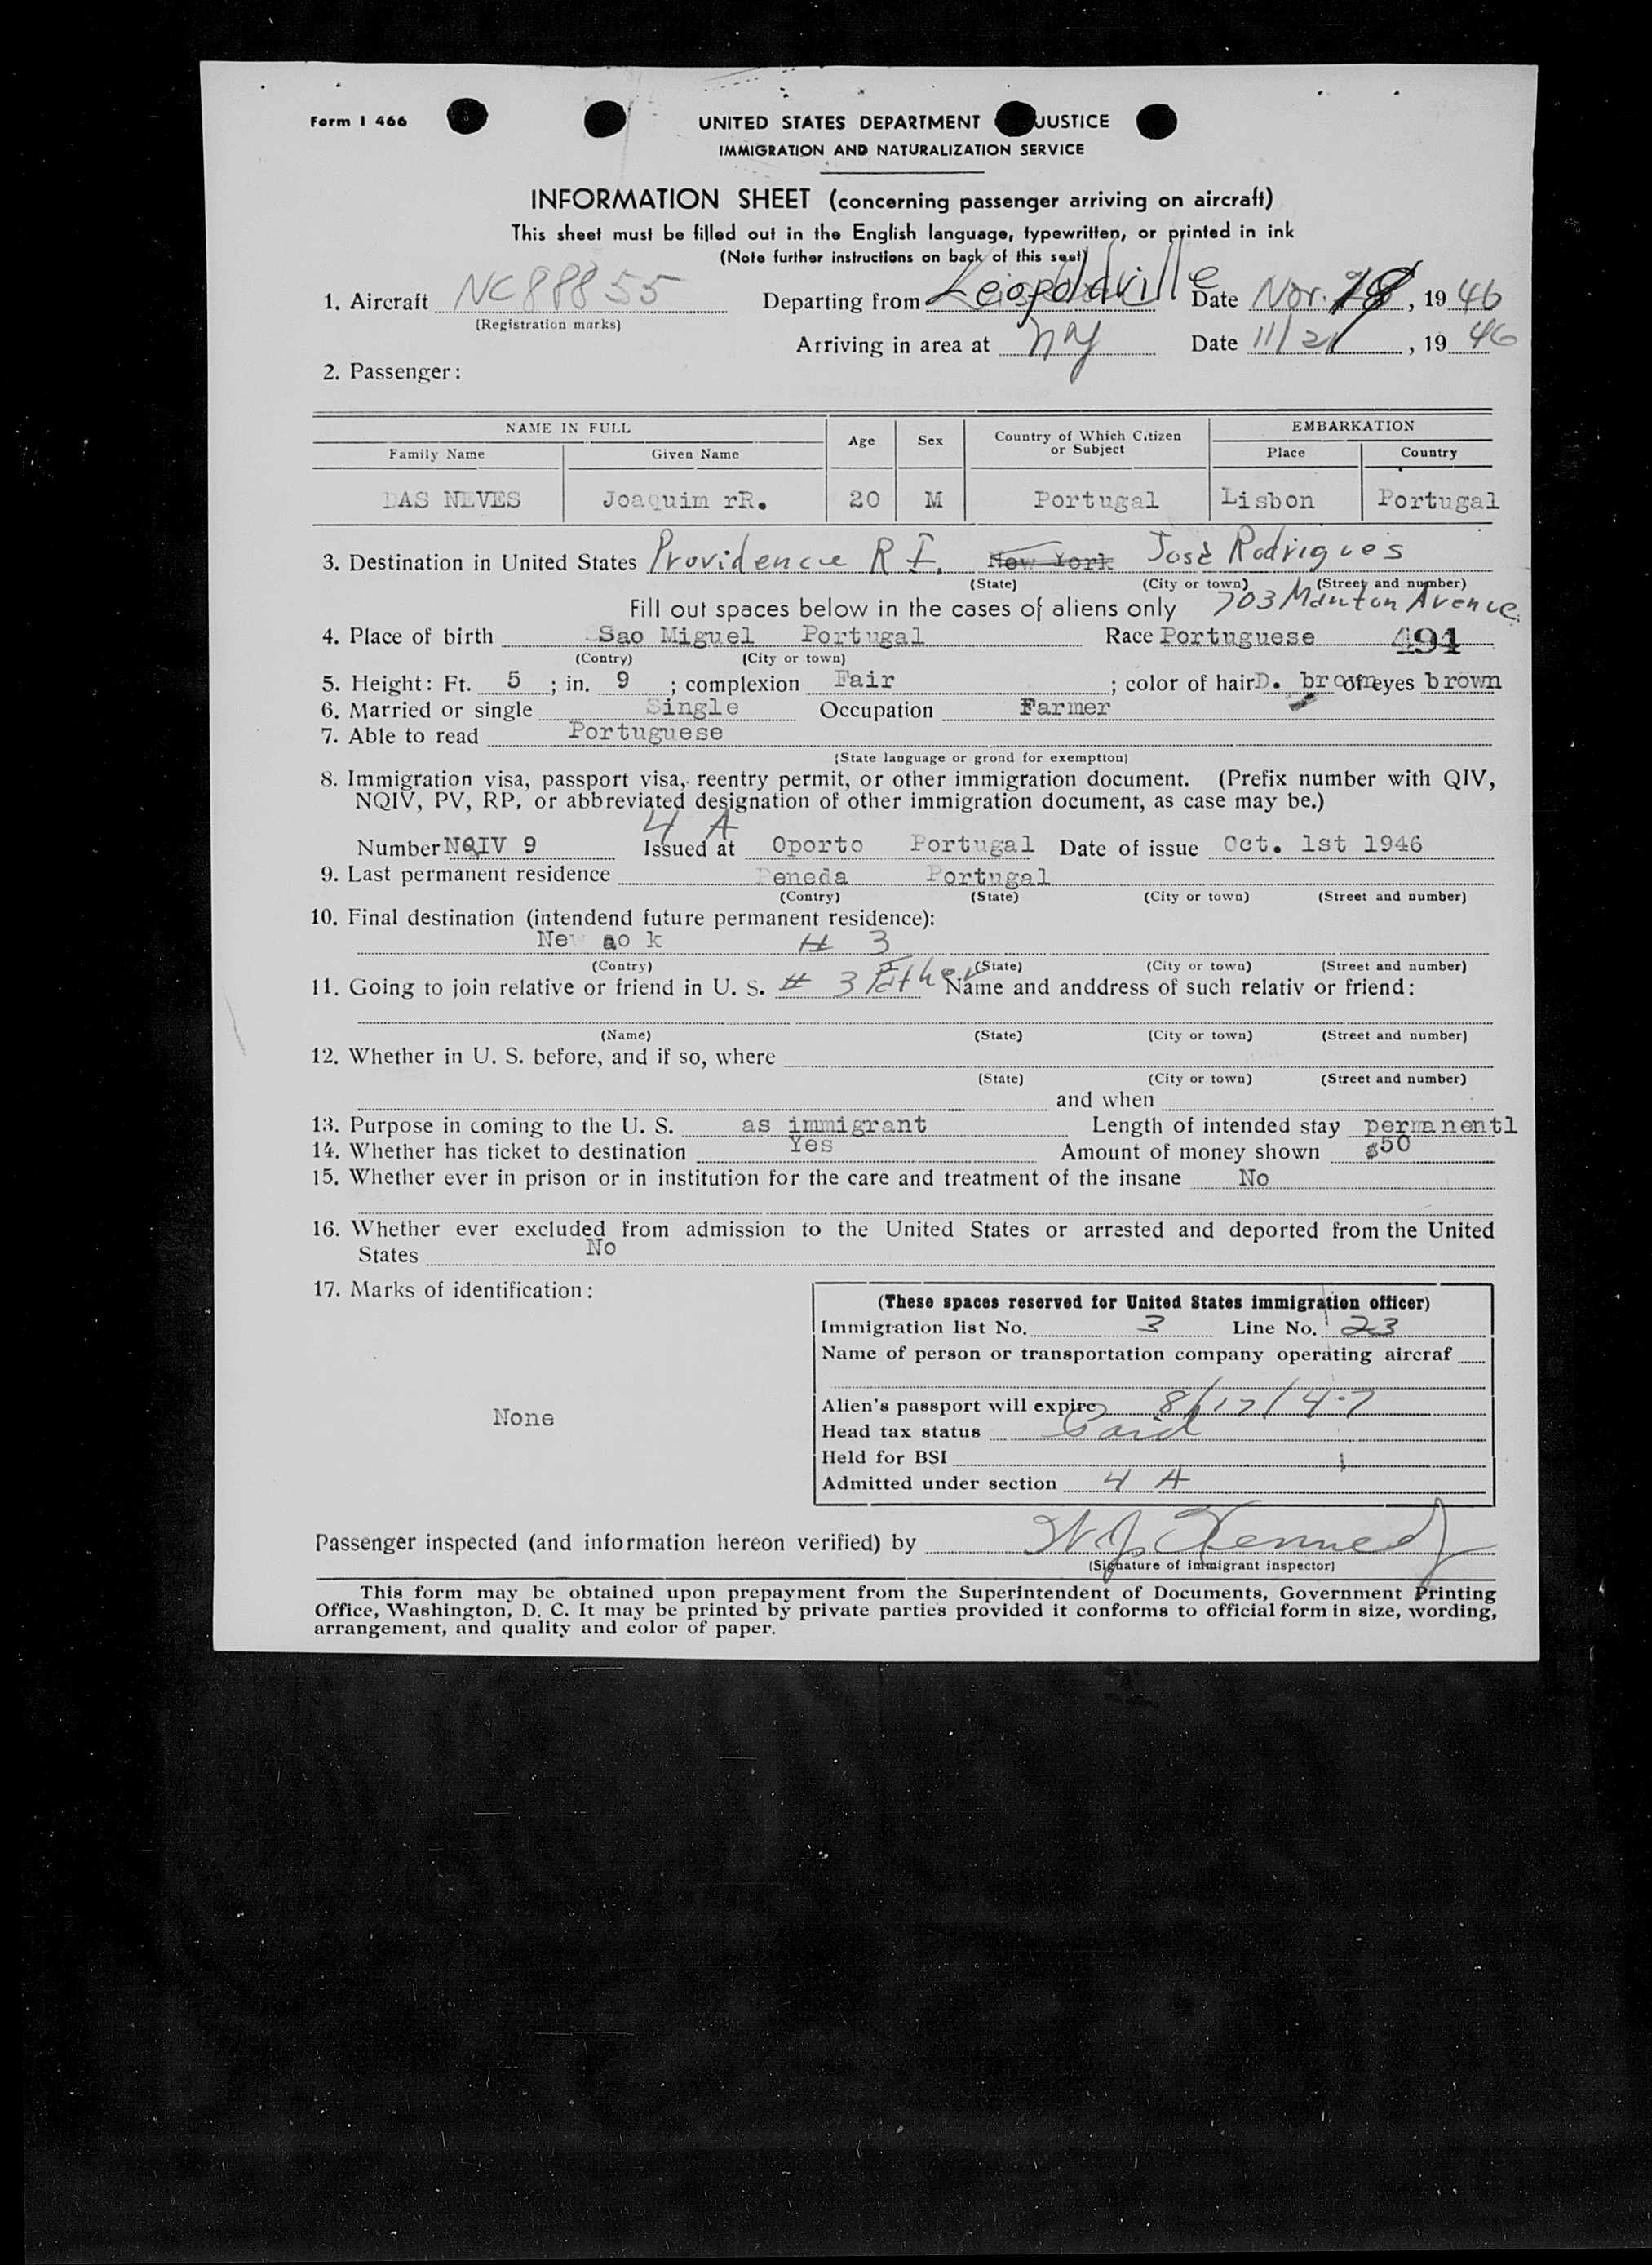 Form I 466
UNITED STATES DEPARTMENT JUSTICE
IMMIGRATION AND NATURALIZATION SERVICE
INFORMATION SHEET (concerning passenger arriving on aircraft)
This sheet must be filled out in the English language, typewritten, or printed in ink
(Note further instructions on back of this seet)
1. Aircraft NC88855 Departing from Leopoldville Date Nov. 18, 1946
(Registration marks)
Arriving in area at NY Date 11/21, 1946
2. Passenger:
NAME IN FULL Age Sex Country of Which Citizen or Subject EMBARKATION
Family Name Given Name Place Country
DAS NEVES Joaquim rR. 20 M Portugal Lisbon Portugal
3. Destination in United States Providence R I. New York José Rodrigues
(State) (City or town) (Street and number)
Fill out spaces below in the cases of aliens only 703 Manton Avenue
4. Place of birth Sao Miguel Portugal Race Portuguese 494
(Contry) (City or town)
5. Height: Ft. 5; in. 9; complexion Fair; color of hair D. brown of eyes brown
6. Married or single Single Occupation Farmer
7. Able to read Portuguese
(State language or grond for exemption)
8. Immigration visa, passport visa, reentry permit, or other immigration document. (Prefix number with QIV,
NQIV, PV, RP, or abbreviated designation of other immigration document, as case may be.)
4 A
Number NQIV 9 Issued at Oporto Portugal Date of issue Oct. 1st 1946
9. Last permanent residence Peneda Portugal
(Contry) (State) (City or town) (Street and number)
10. Final destination (intendend future permanent residence):
# 3
(Contry) (State) (City or town) (Street and number)
11. Going to join relative or friend in U. S. # 3 Father Name and anddress of such relativ or friend:
(Name) (State) (City or town) (Street and number)
12. Whether in U. S. before, and if so, where
(State) (City or town) (Street and number)
and when
13. Purpose in coming to the U. S. as immigrant Length of intended stay permanentl
14. Whether has ticket to destination Yes Amount of money shown $50
15. Whether ever in prison or in institution for the care and treatment of the insane No
16. Whether ever excluded from admission to the United States or arrested and deported from the United
States No
17. Marks of identification:
None
(These spaces reserved for United States immigration officer)
Immigration list No. 3 Line No. 23
Name of person or transportation company operating aircraf
Alien's passport will expire 8/17/47
Head tax status Paid
Held for BSI
Admitted under section 4 A
Passenger inspected (and information hereon verified) by W J Kennedy
(Signature of immigrant inspector)
This form may be obtained upon prepayment from the Superintendent of Documents, Government Printing
Office, Washington, D. C. It may be printed by private parties provided it conforms to official form in size, wording,
arrangement, and quality and color of paper.